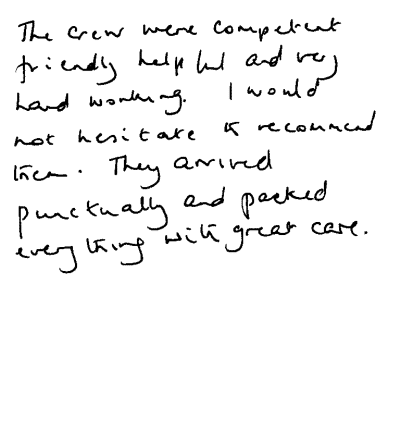 The crew were competent
friendly helpful and very
hard working. I would
not hesitate to recommend
them. They arrived
punctually and packed
everything with great care.